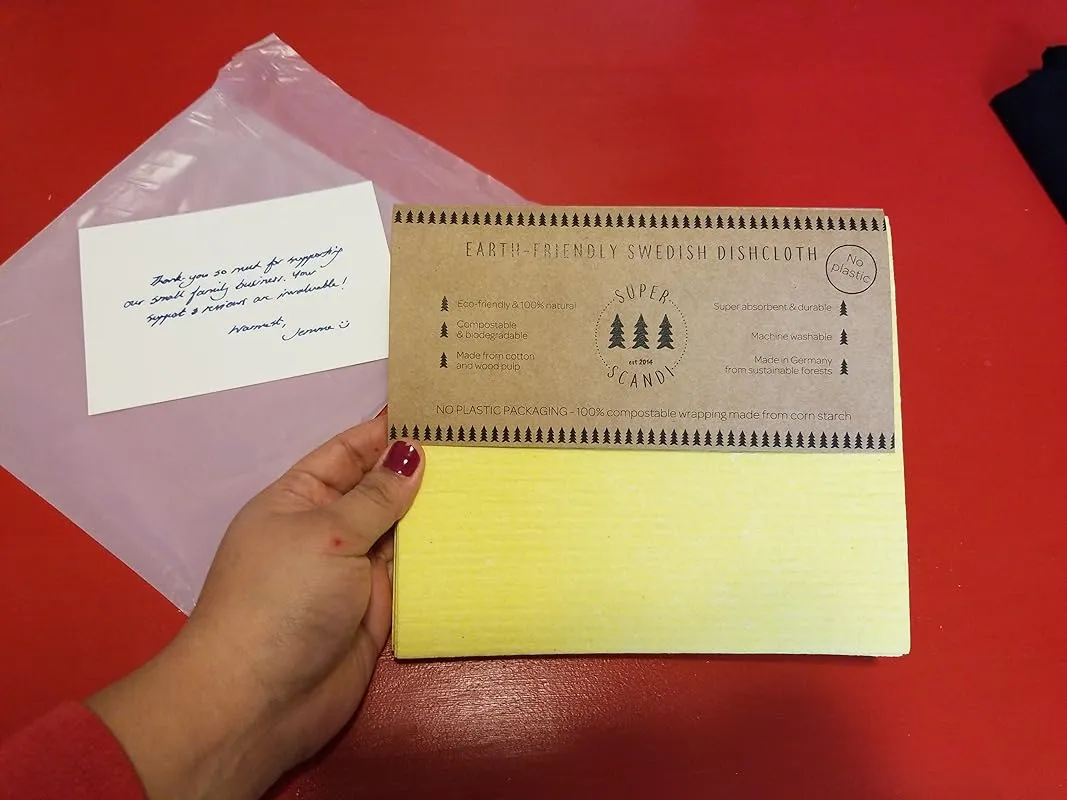 Thank you so much for supporting
our small family business. Your
support & reviews are invaluable!
Warmest,
EARTH-FRIENDLY SWEDISH DISHCLOTH
No
plastic
Eco-friendly & 100% natural
Compostable
& biodegradable
Made from cotton
and wood pulp
SUPER
est 2014
SCANDI
Super absorbent & durable
Machine washable
Made in Germany
from sustainable forests
NO PLASTIC PACKAGING - 100% compostable wrapping made from corn starch